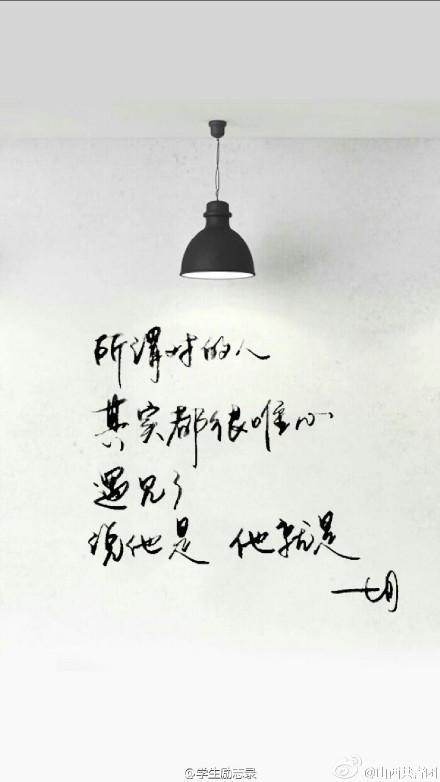 所谓对的人
其实都很唯心
遇见了
说他是 他就是
一七月
@学生励志录
@山西共青团